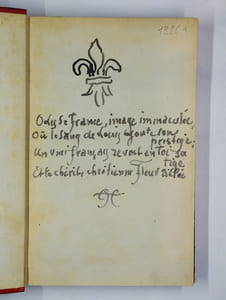 1986
O Lys de France, image immaculée,
Où le sang de Louis ajoute son
prestige,
Un vrai français revoit en toi sa
tige
Et te chérit, chrétienne fleur